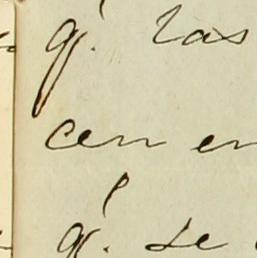 q.' las
cen en
q.' se